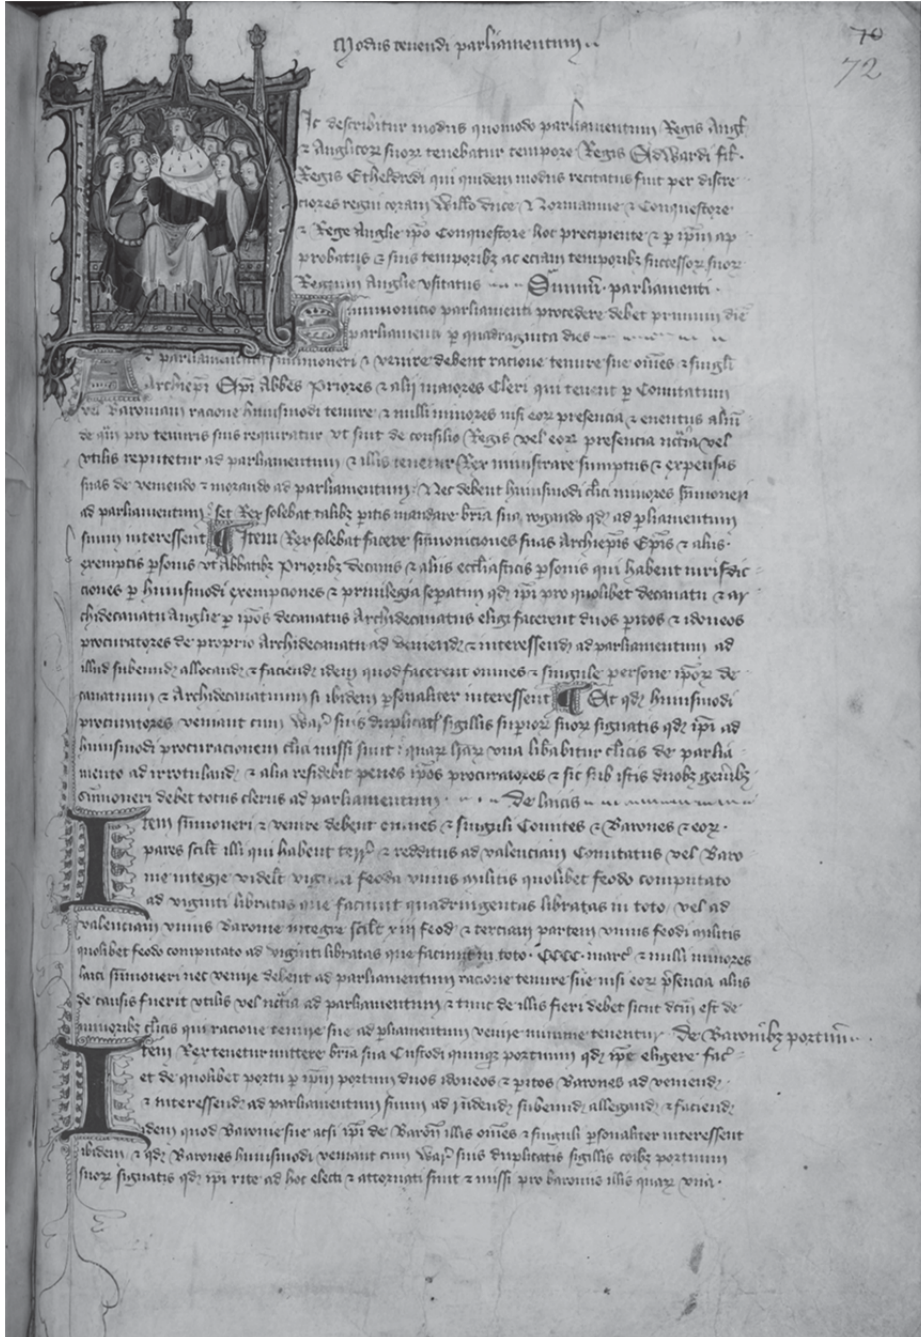 Modus tenendi parliamentum
70
72
Hic describitur modus quomodo parliamentum Regis Angl
& Anglicor suor tenebatur tempore Regis Edwardi fil
Regis Etheldredi qui quidem modus recitatus fuit per discre
ciores regni coram Willo duce & Normannie & Conquestore
& Rege Anglie ipo Conquestore hoc precipiente & p ipm ap
probatus & suis temporibz ac eciam temporibz successor suor
Regum Anglie usitatus Summ parliamenti
Summonicio parliamenti procedere debet primum die
parliamenti p quadraginta dies
Ad parliamentum summoneri & venire debent racione tenure sue omes & singli
Archiepi Epi Abbes Priores & alij maiores Cleri qui tenent p Comitatum
vel Baroniam racione huiusmodi tenure & nulli minores nisi eor presencia & eventus
de pro tenuris suis requiratur ut sint de consilio Regis vel eor presencia vel
utilis reputetur ad parliamentum & illis tenetur Rex ministrare sumptus & expensas
suas de veniendo & morando ad parliamentum Nec debent huiusmodi clici minores summoneri
ad parliamentum set Rex solebat talibz pitis mandare bria sua rogando qd ad pliamentum
suum interessent Item Rex solebat facere summoniciones suas Archiepis Epis & aliis
exemptis psonis ut Abbatibz Prioribz decanis & aliis ecclasticis psonis qui habent iurisdic
ciones p huiusmodi exempciones & privilegia sepatim qd ipi pro quolibet decanatu & ar
chidecanatu Anglie p ipos decanatus Archidecanatus eligi facerent duos pitos & idoneos
procuratores de proprio Archidecanatu ad veniend & interessend ad parliamentum ad
illud subeund allocand & faciend idem quod facerent omnes & singule persone ipor de
canatuum & Archidecanatuum si ibidem psonaliter interessent Et qd huiusmodi
procuratores veniant cum War suis duplicat sigillis supior suor signatis qd ipi ad
huiusmodi procuracionem missi sunt quar una libabitur clicis de parlia
mento ad irrotuland & alia residebit penes ipos procuratores & sic sub istis duobz genibz
summoneri debet totus clerus ad parliamentum De laicis
Item summoneri & venire debent omnes & singuli Comites & Barones & eor
pares scilt illi qui habent terr & redditus ad valenciam Comitatus vel Baro
nie integre videlt viginti feoda unius militis quolibet feodo computato
ad viginti libratas que faciunt quadringentas libratas in toto vel ad
valenciam unius Baronie integre scilt xiii feod & terciam partem unius feodi militis
quolibet feodo computato ad viginti libratas que faciunt in toto CCCC marc & nulli minores
laici summoneri nec venire debent ad parliamentum racione tenure sue nisi eor psencia aliis
de causis fuerit utilis vel ad parliamentum & tunc de illis fieri debet sicut dcm est de
minoribz clicis qui racione tenure sue ad pliamentum venire minime tenentur De Baronibz portuum
Item Rex tenetur mittere bria sua Custodi quinq portuum qd ipe eligere fac
et de quolibet portu p ipm portum duos idoneos & pitos Barones ad veniend
& interessend ad parliamentum suum ad subeund allegand & faciend
idem quod Baronie sue acsi ipi de Baron illis omes & singuli psonaliter interessent
ibidem & qd Barones huiusmodi veniant cum War suis duplicatis sigillis coibz portuum
suor signatis qd ipi rite ad hoc electi & attornati sunt & missi pro baronis illis quar una